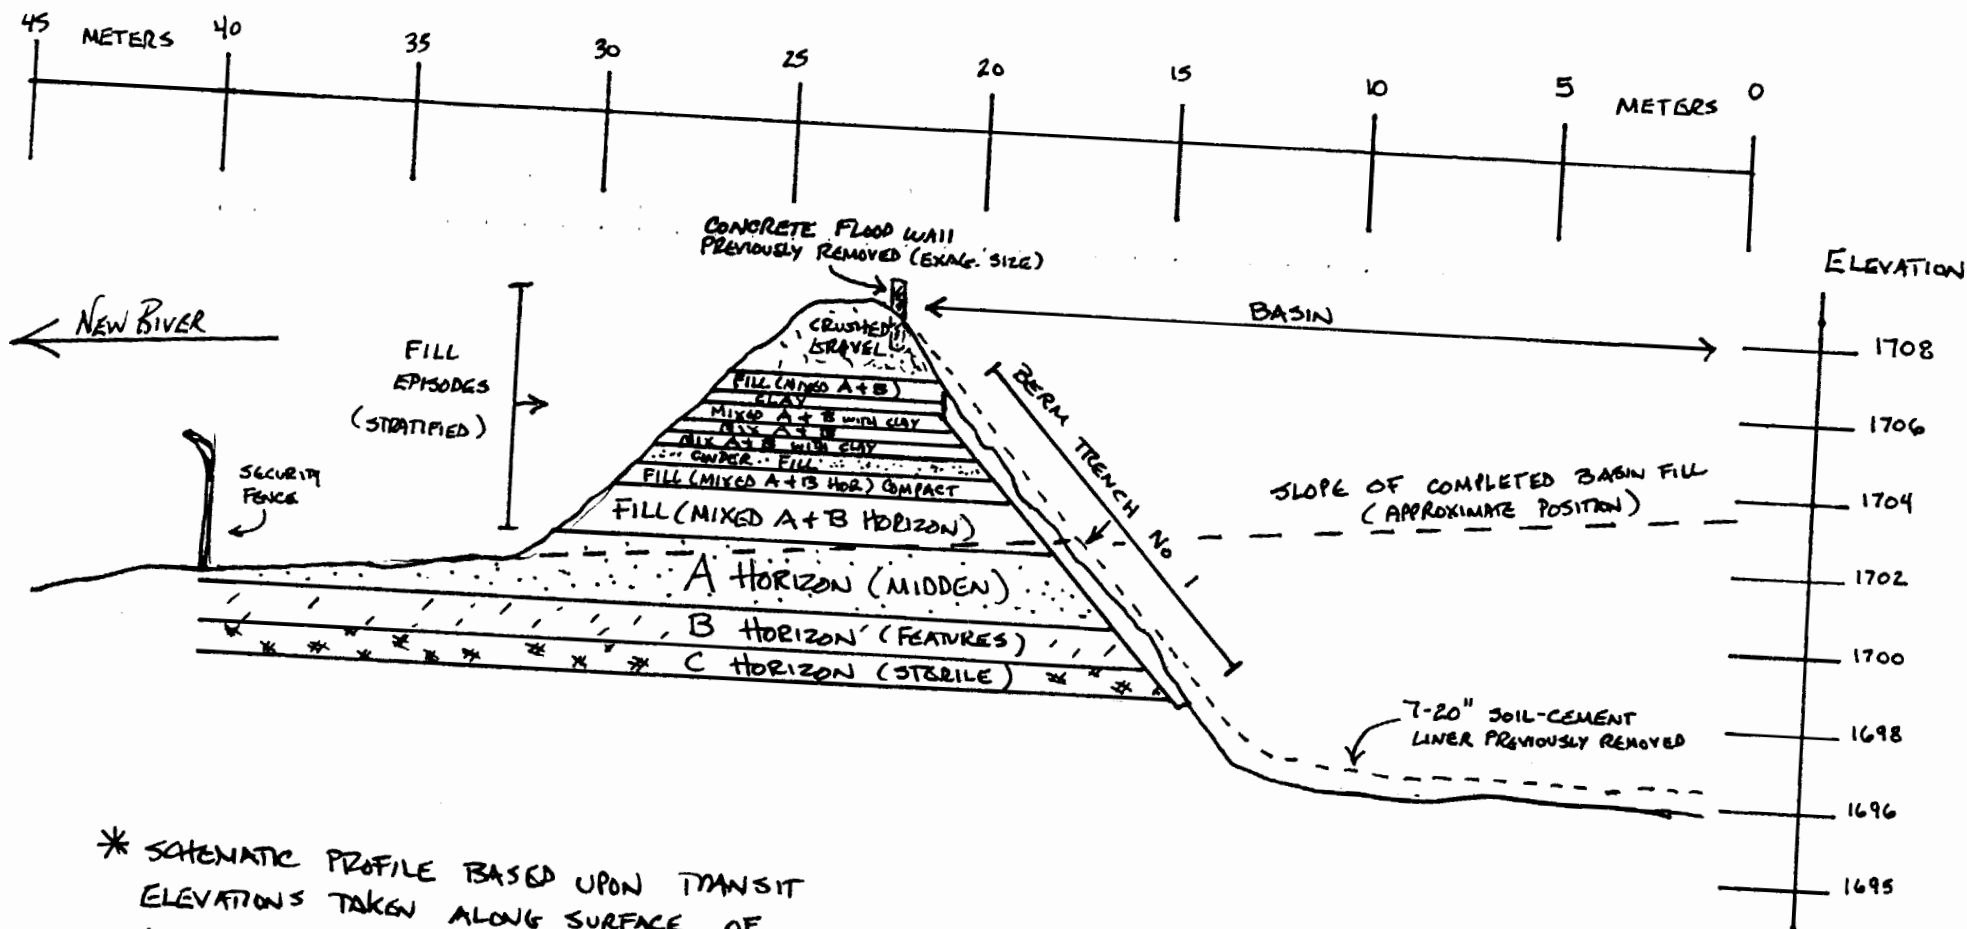 45 40 35 30 25 20 15 10 5 0
METERS
METERS
CONCRETE FLOOD WALL
PREVIOUSLY REMOVED (EXAG. SIZE)
ELEVATION
NEW RIVER
BASIN
FILL
EPISODES
(STRATIFIED)
SECURITY
FENCE
CRUSHED
GRAVEL
FILL (MIXED A + B)
CLAY
MIXED A + B WITH CLAY
MIX A + B
MIX A + B WITH CLAY
CINDER FILL
FILL (MIXED A + B HOR) COMPACT
FILL (MIXED A + B HORIZON)
A HORIZON (MIDDEN)
B HORIZON (FEATURES)
C HORIZON (STERILE)
BERM TRENCH No 1
SLOPE OF COMPLETED BASIN FILL
(APPROXIMATE POSITION)
7-20" SOIL-CEMENT
LINER PREVIOUSLY REMOVED
1708
1706
1704
1702
1700
1698
1696
1695
* SCHEMATIC PROFILE BASED UPON TRANSIT
ELEVATIONS TAKEN ALONG SURFACE OF